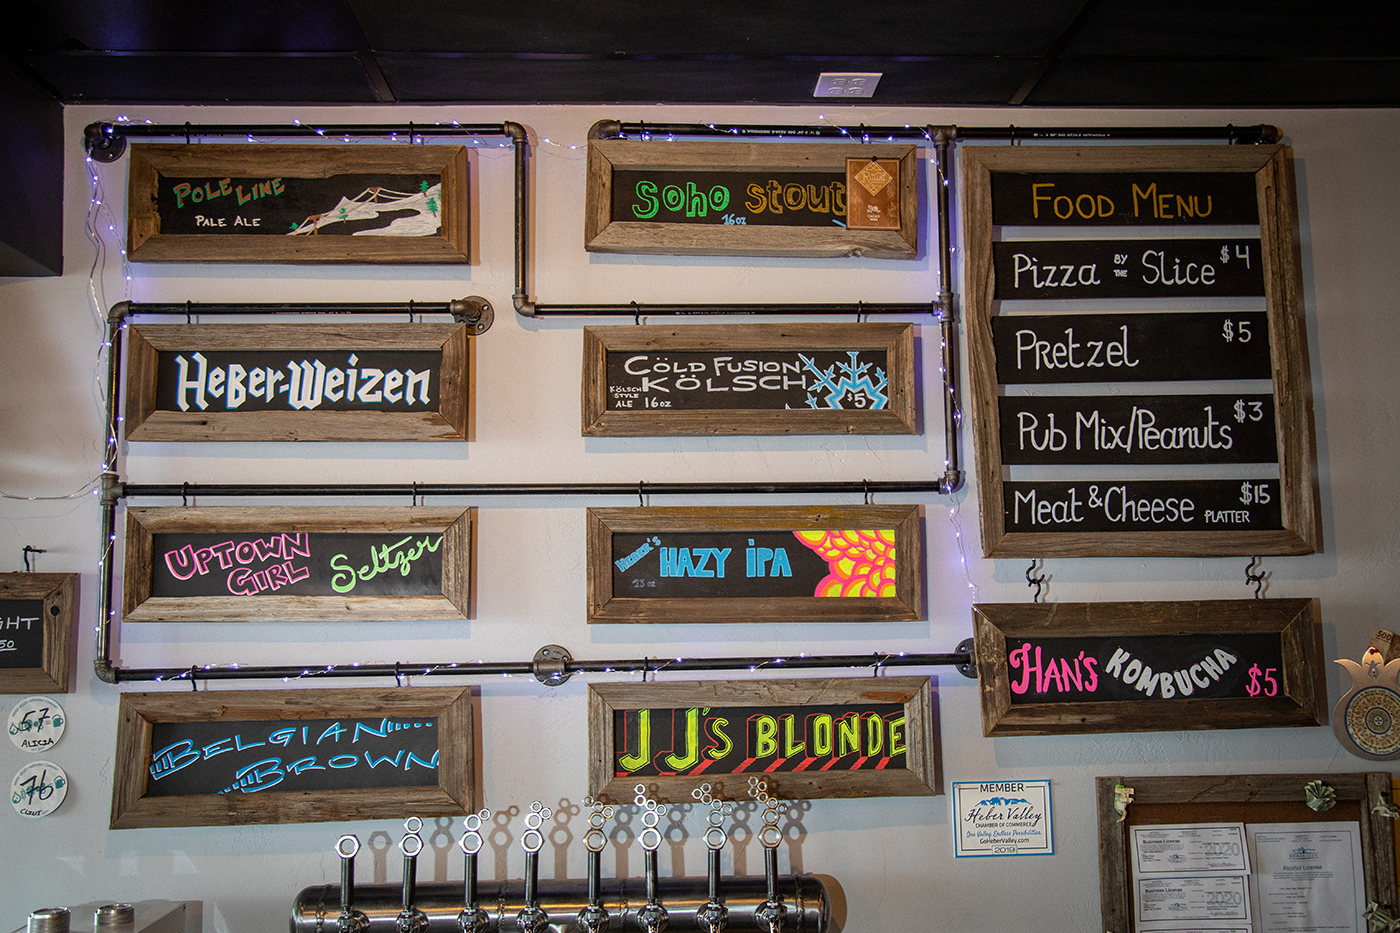 POLE LINE
PALE ALE
Soho Stout
16oz
Ritual
CACAO
HEBER-WEIZEN
CÖLD FUSION
KÖLSCH
KÖLSCH
STYLE
ALE 16oz
$5
UPTOWN
GIRL
Seltzer
HEBER'S
HAZY IPA
23 oz
BELGIAN
BROWN
JJ's BLONDE
FOOD MENU
Pizza BY THE Slice $4
Pretzel $5
Pub Mix/Peanuts $3
Meat & Cheese PLATTER $15
HAN'S KOMBUCHA $5
GHT
50
67
ALICIA
76
MEMBER
Heber Valley
CHAMBER OF COMMERCE
One Valley Endless Possibilities.
GoHeberValley.com
2019
Business License
2020
Business License
2020
Alcohol License